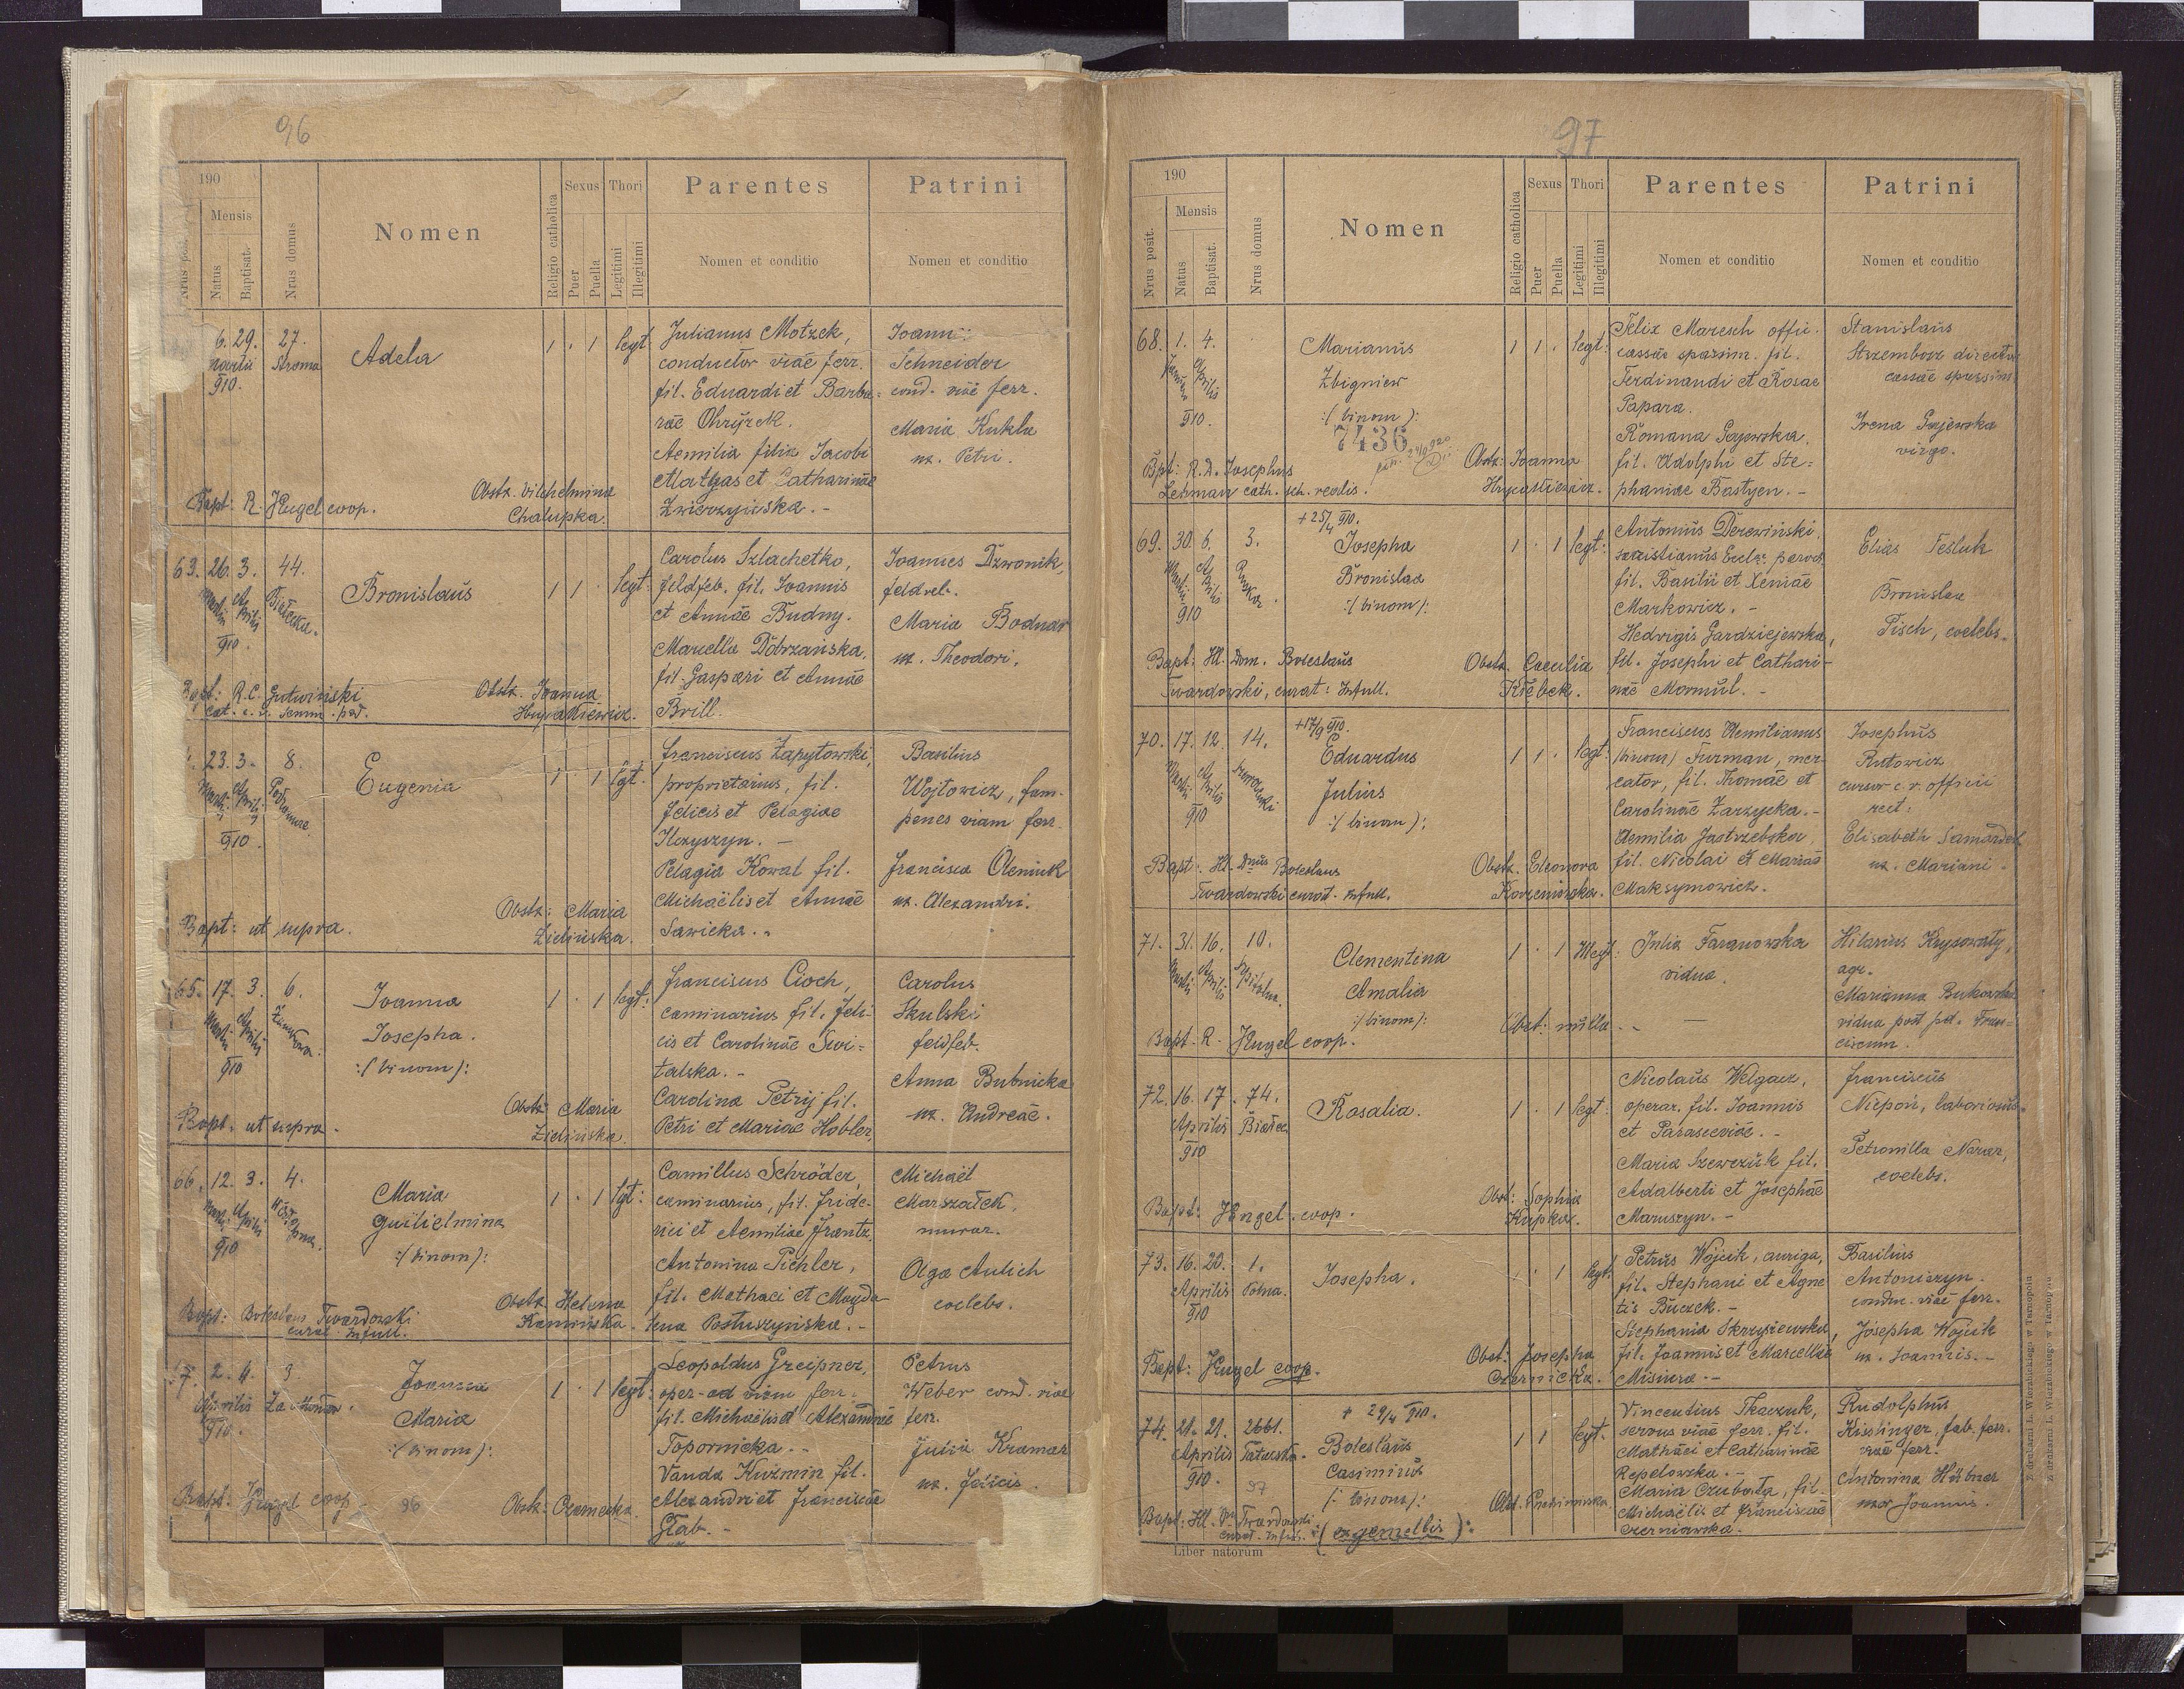 96
190
Mensis
Natus
Baptisat.
Nrus domus
Nomen
Religio catholica
Sexus
Puer
Puella
Thori
Legitimi
Illegitimi
Parentes
Nomen et conditio
Patrini
Nomen et conditio
6. 29. 27.
Martii Stroma
910.
Adela
1 . 1 legt.
Julianus Motzek,
conductor viae ferr.
fil. Eduardi et Barba-
rae Ohryzek.
Aemilia filia Jacobi
Matyas et Catharinae
Zwierzyńska. -
Joann:
Schneider
cond. viae ferr.
Maria Kukla
ux. Petri.
Bapt: R. Hugel coop.
Obstz. Vilchelmina
Chalupka.
63. 26. 3. 44.
Martii Aprilis
910.
Bronislaus
1 1 . legt:
Carolus Szlachetko,
feldfeb. fil. Joannis
et Annae Budny.
Marcella Dobrzańska,
fil. Gaspari et Annae
Brill.
Joannes Dzwonik,
feldveb.
Maria Bodnar
ux. Theodori.
Bapt: R. C. Gutwiński
Obstz. Joanna
23. 3. 8.
Martii Aprilis
910.
Eugenia
1 . 1 lgt.
Franciscus Zapytowski,
proprietarius, fil.
Felicis et Pelagiae
Ilczyszyn. -
Pelagia Kowal fil.
Michaëlis et Annae
Sawicka. -
Basilius
Wojtowicz, fam.
penes viam ferr.
Francisca Oleniuk
ux. Alexandri.
Bapt: ut supra.
Obstz: Maria
Zielińska.
65. 17. 3. 6.
Martii Aprilis
910
Joanna
Josepha.
:/binom/:
1 . 1 legt:
Franciscus Cioch,
caminarius fil. Feli-
cis et Carolinae Swi-
talska. -
Carolina Petrij fil.
Petri et Mariae Hobler.
Carolus
Skulski
feldfeb.
Anna Bubnicka
ux. Andreae.
Bapt. ut supra.
Obstz: Maria
Zielińska.
66. 12. 3. 4.
Martii Aprilis
910
Maria
Guilielmina
:/binom/:
1 . 1 lgt:
Camillus Schröder,
caminarius, fil. Fride-
rici et Aemiliae Frantz.
Antonina Pichler,
fil. Mathaei et Magda-
lena Postuszyńska. -
Michaël
Marszałek,
murar.
Olga Aulich
coelebs.
Bapt: Boleslaus Twardowski
curat. Infull.
Obstz Helena
Kamińska.
7. 2. 4. 3.
Aprilis
910.
Joanna
Maria
:/binom/:
1 . 1 legt:
Leopoldus Greipner,
oper. ad viam ferr.
fil. Michaëlis et Alexandrae
Topornicka. -
Vanda Kuźmin fil.
Alexandri et Franciscae
Głab. -
Petrus
Weber cond. viae
ferr.
Julia Kramar
ux. Felicis.
Bapt: Hugel coop
96
Obstz: Czarnecka.
97
190
Nrus posit.
Mensis
Natus
Baptisat.
Nrus domus
Nomen
Religio catholica
Sexus
Puer
Puella
Thori
Legitimi
Illegitimi
Parentes
Nomen et conditio
Patrini
Nomen et conditio
68. 1. 4.
Aprilis
910.
Marianus
Zbigniew
:/binom/:
7436
1 1 . legt:
Felix Maresch offic.
cassae sparsim. fil.
Ferdinandi et Rosae
Papara.
Romana Gajewska,
fil. Adolphi et Ste-
phaniae Bastgen. -
Stanislaus
Strzembosz director
cassae
Irena Gajewska
virgo.
Bpt: R. D. Josephus
Lehman cath. sch. realis.
Obstz: Joanna
69. 30. 6. 3.
Martii Aprilis
910
+ 25/4 910.
Josepha
Bronislaa
:/binom/:
1 . 1 legt:
Antonius Derewiński,
fil. Basilii et Xeniae
Markowicz. -
Hedvigis Gardziejewska,
fil. Josephi et Cathari-
nae Mormul. -
Elias Tesluk
Bronislaa
Tisch, coelebs.
Bapt: Hl. Dom. Boleslaus
Twardowski, curat: Infull.
Obstz. Caecilia
Klebek.
70. 17. 12. 14.
Martii Aprilis
910
+ 17/9 910.
Eduardus
Julius
:/binom/:
1 1 . legt:
Franciscus Aemilianus
(binom) Furman, mer-
cator, fil. Thomae et
Carolinae Zarzycka. -
Aemilia Jastrzebska
fil. Nicolai et Marias
Maksymowicz.
Josephus
Rutowicz
cursor c. r. officii
rect.
Elisabeth Samardek
ux. Mariani -
Bapt: Hl. Dnus Boleslaus
Twardowski curat. Infull.
Obstz. Eleonora
71. 31. 16. 10.
Martii Aprilis
Clementina
Amalia
:/binom/:
1 . 1 Illegt:
Julia Faranowska
vidua.
Hilarius Krysowaty,
agr.
Marianna Bukowska
vidua post
Bapt. R. Hugel coop.
Obst: nulla. -
72. 16. 17. 74.
Aprilis
910
Rosalia.
1 . 1 legt:
Nicolaus Welgacz,
operar. fil. Joannis
et Parasceviae. -
Maria Szewczuk fil.
Adalberti et Josephae
Maruszyn. -
Franciscus
Niepoń, laboriosus.
Petronilla Narar,
coelebs.
Bapt: Hugel. coop.
Obst: Sophia
Kupka.
73. 16. 20. 1.
Aprilis
910
Josepha.
. . 1 legt.
Petrus Wojcik, auriga,
fil. Stephani et Agne
tis Buczek. -
Stephania Skrzyszewska,
fil. Joannis et Marcellae
Misiura. -
Basilius
Antoniszyn.
condu. viae ferr.
Josepha Wojcik
ux. Joannis. -
Bapt: Hugel coop.
Obst: Josepha
Czernicka.
74. 21. 21. 2661.
Aprilis
910.
97
+ 29/4 910.
Boleslaus
Casimirus
(- binom):
1 1 legt.
Vincentius Tkaczuk,
servus viae ferr. fil.
Mathaei et Catharinae
Repelowska. -
Maria Czubata, fil.
Michaëlis et Franciscae
Czerniawska. -
Rudolphus
Kisslinger, fab. ferr.
viae ferr.
Antonina Hübner
uxor Joannis.
Bapt: Hl. Dn Twardowski
:( ex gemellis ):
Liber natorum
Z drukarni L. Wierzbickiego w Tarnopolu